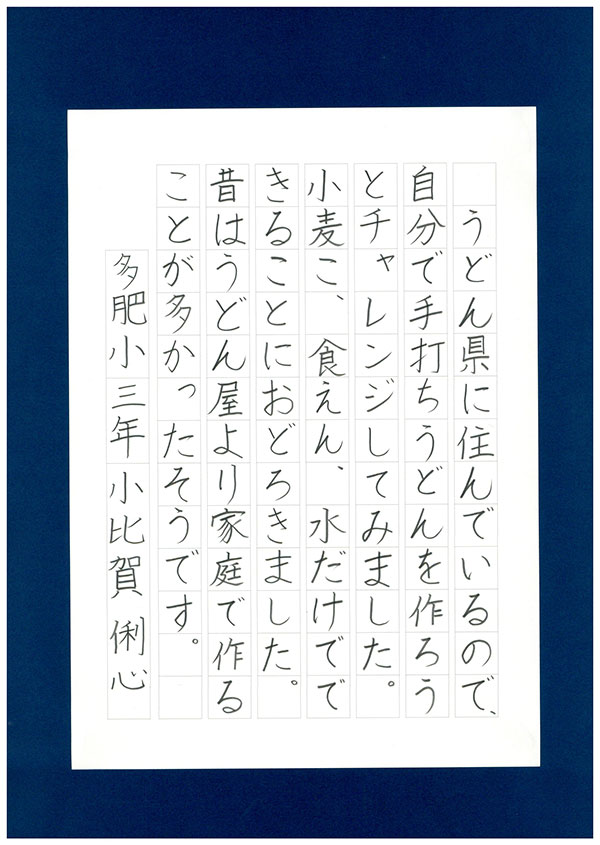 うどん県に住んでいるので、
自分で手打ちうどんを作ろう
とチャレンジしてみました。
小麦こ、食えん、水だけでで
きることにおどろきました。
昔はうどん屋より家庭で作る
ことが多かったそうです。
多肥小三年 小比賀 俐心